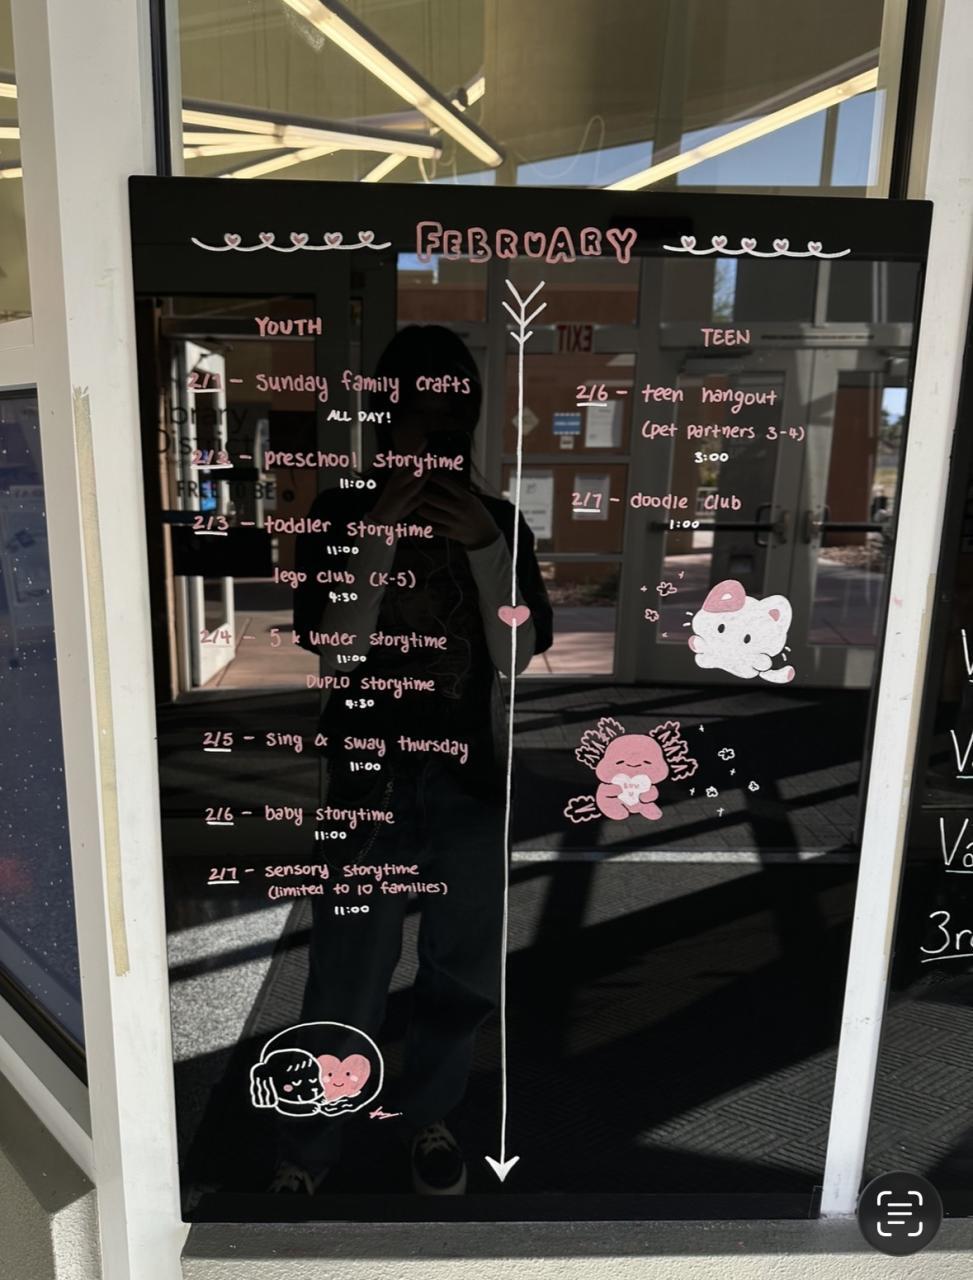 FEBRUARY
YOUTH
2/1 - Sunday family crafts
ALL DAY!
2/2 - preschool storytime
11:00
2/3 - toddler storytime
11:00
lego club (K-5)
4:30
2/4 - 5 & under storytime
11:00
DUPLO storytime
4:30
2/5 - Sing & Sway thursday
11:00
2/6 - baby storytime
11:00
2/7 - sensory storytime
(limited to 10 families)
11:00
TEEN
2/6 - teen hangout
(pet partners 3-4)
3:00
2/7 - doodle club
1:00
EXIT
District
FREE TO BE